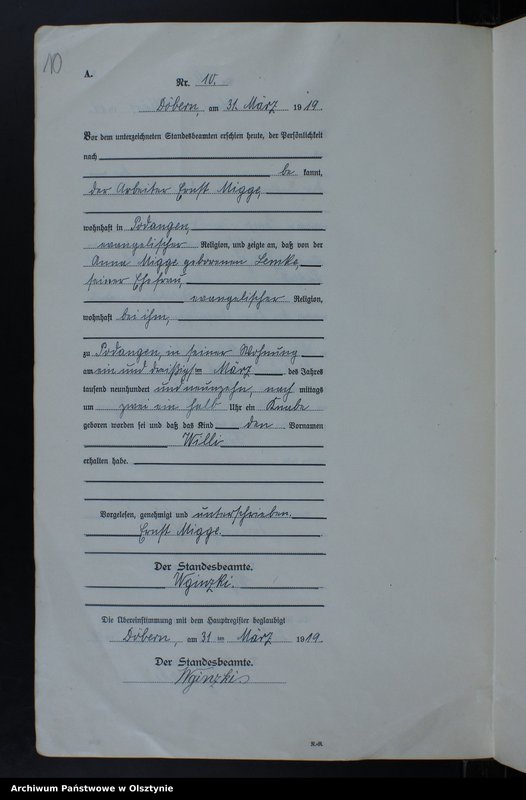 10
A.
Nr. 10.
Döbern, am 31. März 1919.
Vor dem unterzeichneten Standesbeamten erschien heute, der Persönlichkeit
nach
be kannt,
der Arbeiter Ernst Migge,
wohnhaft in Podangen,
evangelischer Religion, und zeigte an, daß von der
Anna Migge geborenen Lemke,
seiner Ehefrau,
evangelischer Religion,
wohnhaft bei ihm,
zu Podangen, in seiner Wohnung
am ein und dreißigsten März des Jahres
tausend neunhundert und neunzehn, nach mittags
um zwei ein halb Uhr ein Knabe
geboren worden sei und daß das Kind den Vornamen
Willi
erhalten habe.
Vorgelesen, genehmigt und unterschrieben.
Ernst Migge.
Der Standesbeamte.
Wginzki.
Die Übereinstimmung mit dem Hauptregister beglaubigt
Döbern, am 31 ten März 1919.
Der Standesbeamte.
Wginzki.
Archiwum Państwowe w Olsztynie